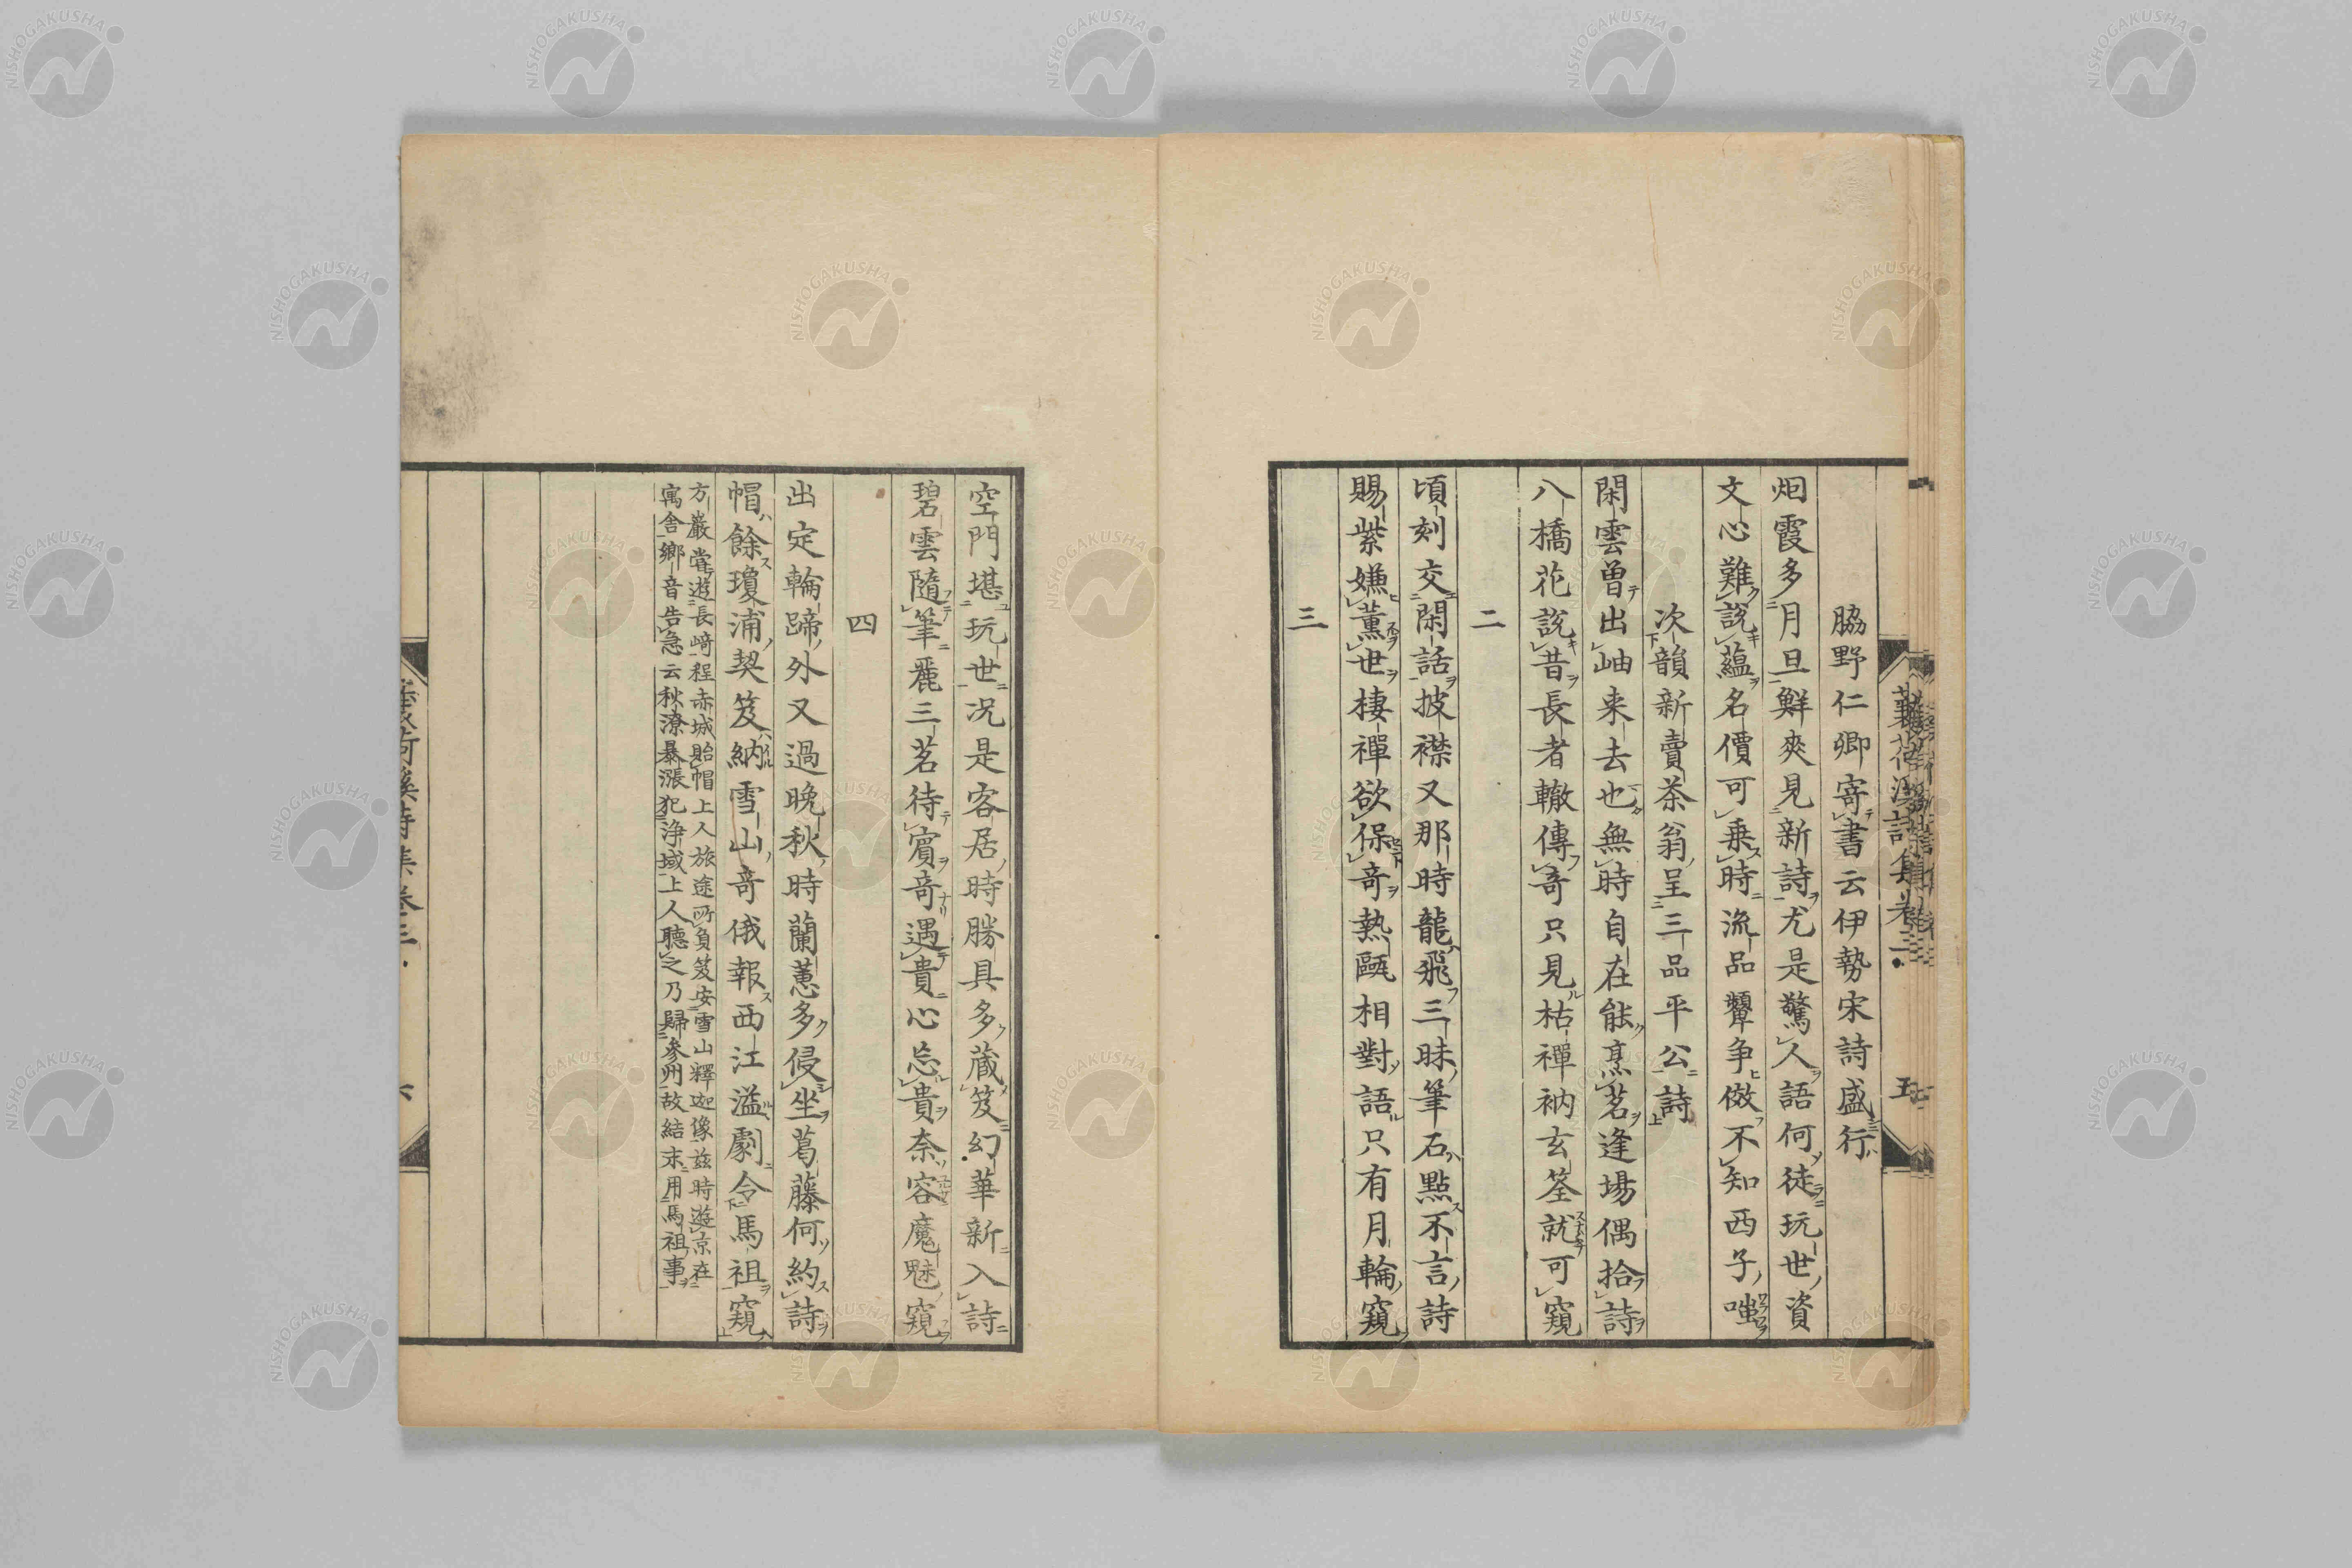 脇野仁卿寄書云伊勢宋詩盛行
烟霞多月旦鮮爽見新詩尤是驚人語何徒玩世資
文心難說蘊名價可乗時流品顰争傚不知西子嗤
次韻新賣茶翁呈三品平公詩
閑雲曽出岫来去也無時自在能烹茗逢場偶拾詩
八橋花說昔長者轍傳奇只見枯禪衲玄筌就可窺
二
頃刻交閑話披襟又那時龍飛三昧筆石點不言詩
賜紫嫌薫世棲禪欲保奇熱甌相對語只有月輪窺
三
空門堪玩世況是客居時勝具多蔵笈幻華新入詩
碧雲隨筆麗三茗待賓奇遇貴心忘貴奈容魔魅窺
四
出定輪蹄外又過晩秋時蘭蕙多侵坐葛藤何約詩
帽餘瓊浦契笈納雪山奇俄報西江溢劇令馬祖窺
方巖嘗遊長崎程赤城貽帽上人旅途所負笈安雪山釋迦像茲時遊京在
寓舎鄉音告急云秋潦暴漲犯浄域上人聽之乃歸参州故結末用馬祖事
NISHOGAKUSHA